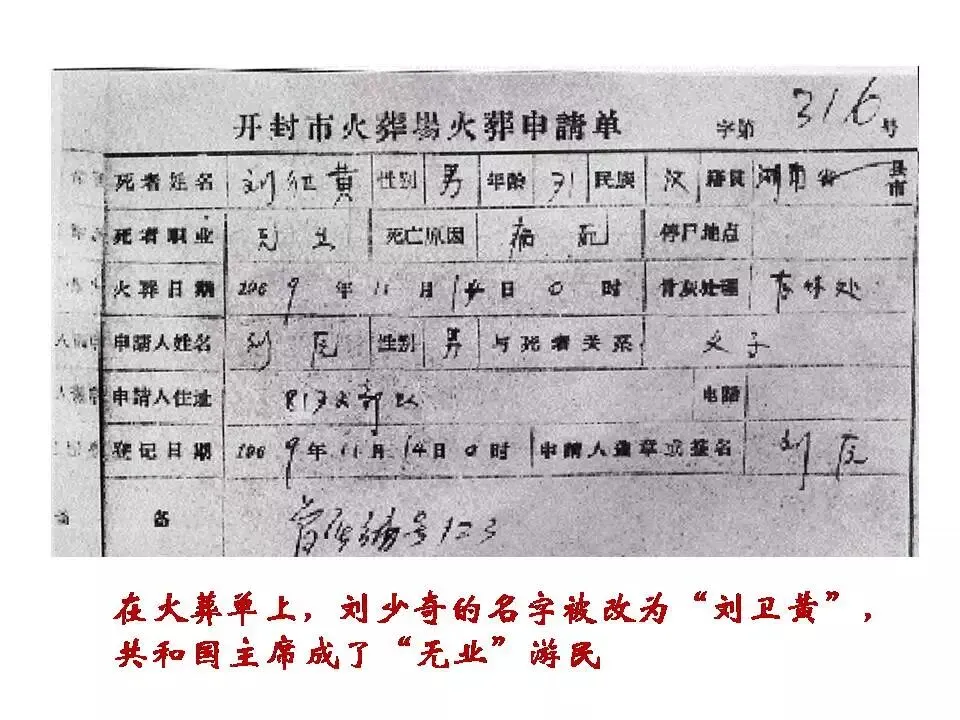 开封市火葬場火葬申請单 字第 316 号
死者姓名 刘卫黄 性别 男 年龄 71 民族 汉 籍贯 湖南省 县市
死者职业 无业 死亡原因 病死 停尸地点
火葬日期 1969年11月14日0时 骨灰处理
申請人姓名 刘原 性别 男 与死者关系 父子
申請人住址 部队 电話
登记日期 1969年11月14日0时 申請人盖章或签名 刘原
备 骨灰编号123
在火葬单上，刘少奇的名字被改为“刘卫黄”，
共和国主席成了“无业”游民